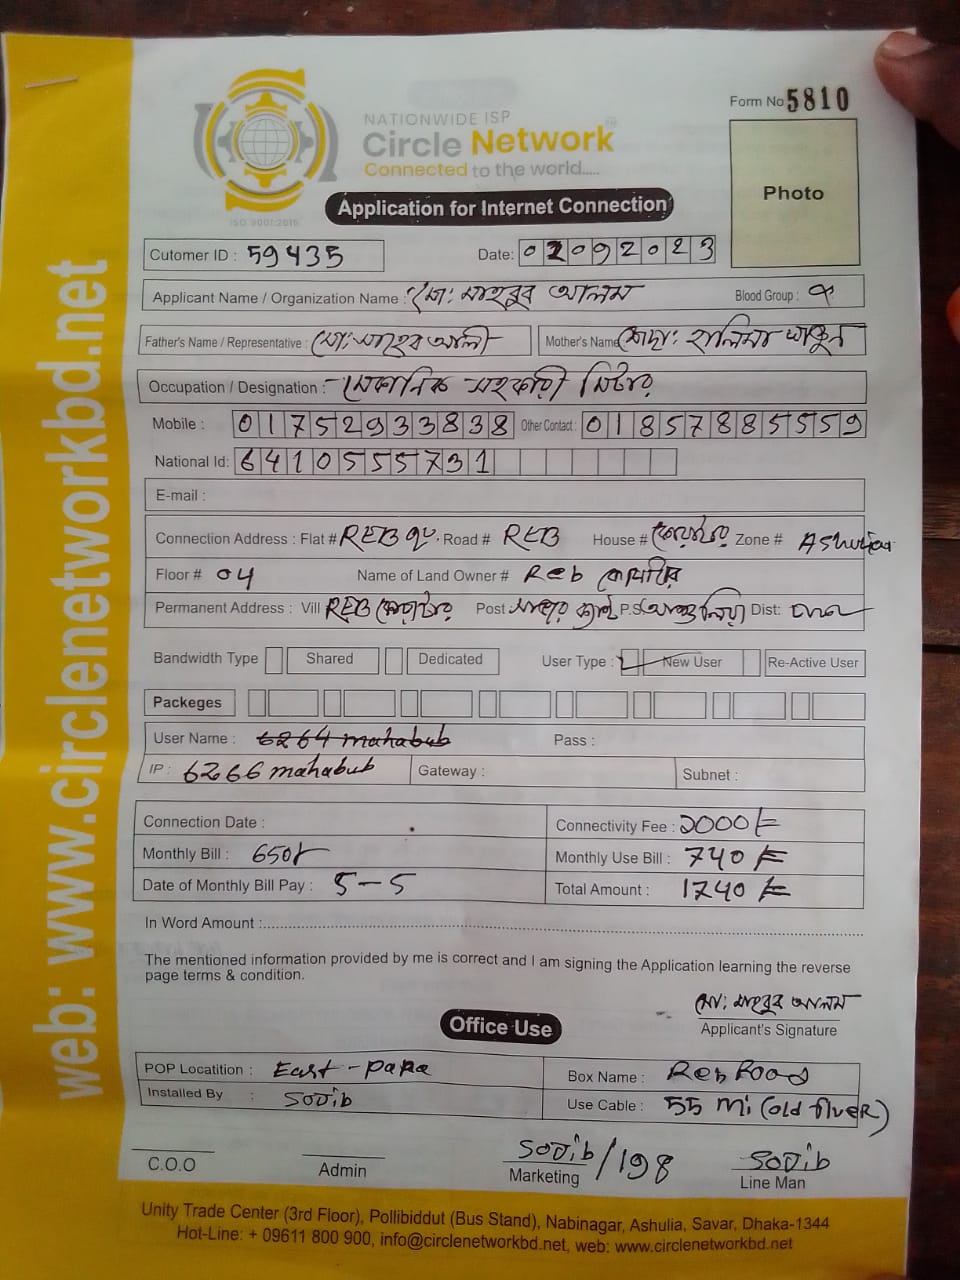 Form No 5810
NATIONWIDE ISP
Circle Network
Connected to the world.....
ISO 9001:2015
Photo
Application for Internet Connection
Cutomer ID : 59435 Date: 02092023
Applicant Name / Organization Name : মো: মাহবুব আলম Blood Group :
Father's Name / Representative : মো: আলী Mother's Name মোছা: হালিমা খাতুন
Occupation / Designation :
Mobile : 01752933838 Other Contact : 01857885559
National Id: 6410555731
E-mail :
Connection Address : Flat # REB Road # REB House # Zone #
Floor # 04 Name of Land Owner # Reb
Permanent Address : Vill REB Post P.S Dist:
Bandwidth Type Shared Dedicated User Type : New User Re-Active User
Packeges
User Name : 6264 mahabub Pass :
IP : 6266 mahabub Gateway : Subnet :
Connection Date : Connectivity Fee :
Monthly Bill : 650/- Monthly Use Bill : 740/=
Date of Monthly Bill Pay : 5-5 Total Amount : 1740/=
In Word Amount :
The mentioned information provided by me is correct and I am signing the Application learning the reverse
page terms & condition.
মো: মাহবুব আলম
Applicant's Signature
Office Use
POP Locatition : East-Para Box Name : Reb Road
Installed By : Sojib Use Cable : 55 Mi (old
C.O.O Admin Sojib/198 Sojib
Marketing Line Man
Unity Trade Center (3rd Floor), Pollibiddut (Bus Stand), Nabinagar, Ashulia, Savar, Dhaka-1344
Hot-Line: + 09611 800 900, info@circlenetworkbd.net, web: www.circlenetworkbd.net
web: www.circlenetworkbd.net